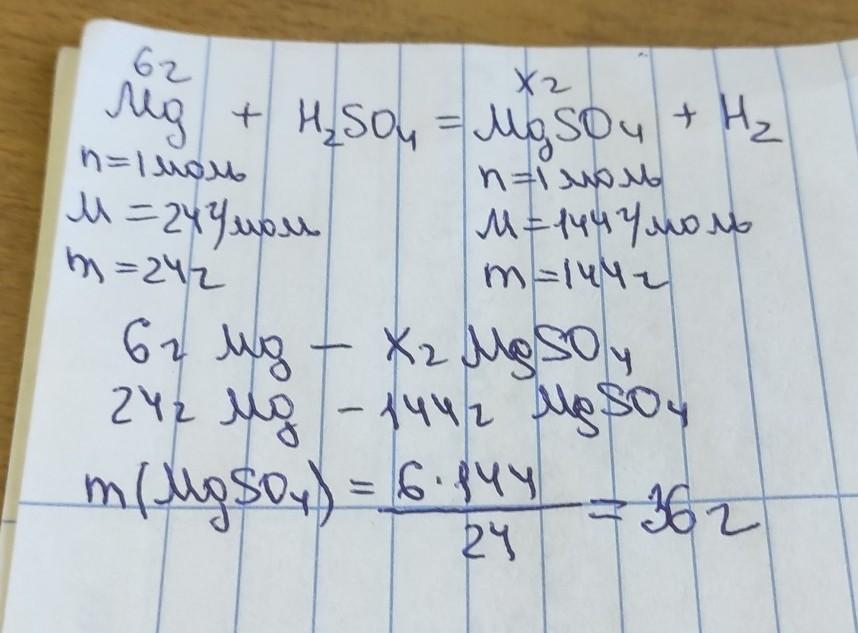 6г хг
Mg + H₂SO₄ = MgSO₄ + H₂
n=1моль n=1моль
M=24г/моль M=144г/моль
m=24г m=144г
6г Mg – хг MgSO₄
24г Mg – 144г MgSO₄
m(MgSO₄) = 6·144 / 24 = 36г